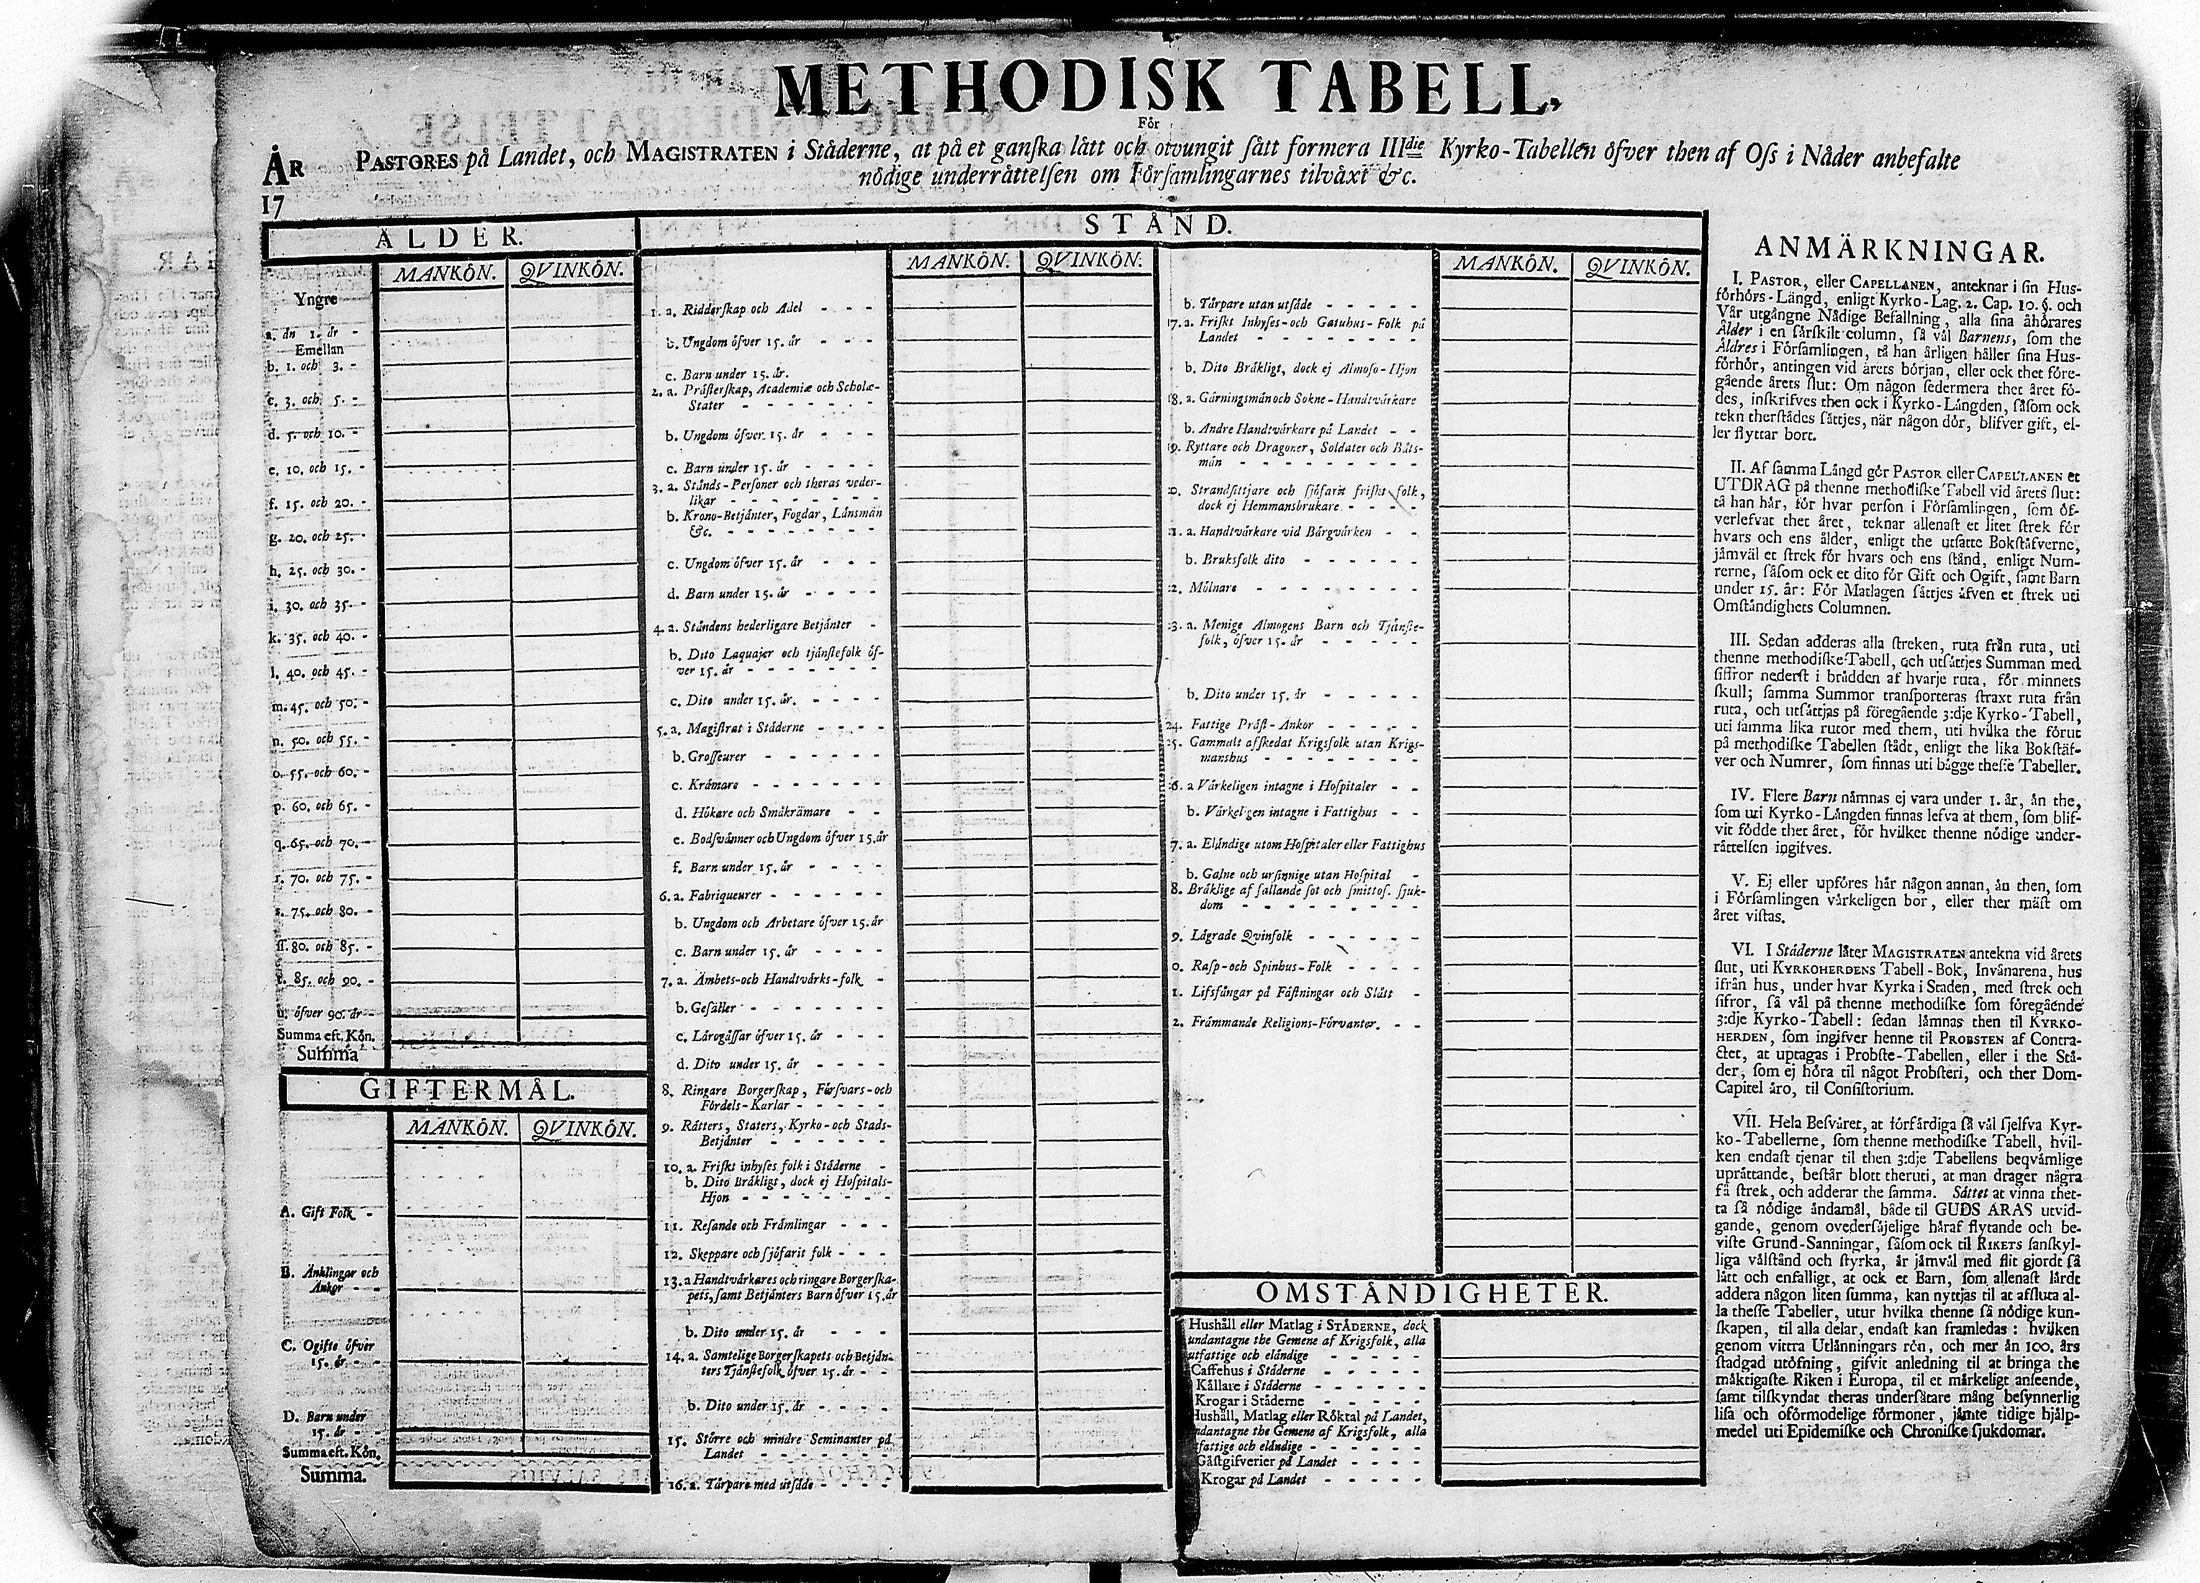 METHODISK TABELL,
För
ÅR PASTORES på Landet, och MAGISTRATEN i Städerne, at på et ganſka lätt och otvungit ſätt formera IIIdie Kyrko-Tabellen öfver then af Oſs i Nåder anbefalte
nödige underrättelſen om Förſamlingarnes tilväxt &c.
17
ÅLDER.
MANKÖN. QVINKÖN.
Yngre
a. än 1. år -
Emellan
b. 1. och 3. -
c. 3. och 5. -
d. 5. och 10. -
e. 10. och 15. -
f. 15. och 20. -
g. 20. och 25. -
h. 25. och 30. -
i. 30. och 35. -
k. 35. och 40. -
l. 40. och 45. -
m. 45. och 50. -
n. 50. och 55. -
o. 55. och 60. -
p. 60. och 65. -
q. 65. och 70. -
r. 70. och 75. -
s. 75. och 80. -
ſſ. 80. och 85. -
t. 85. och 90. -
u. öfver 90. år -
Summa eft. Kön.
Summa
GIFTERMÅL.
MANKÖN. QVINKÖN.
A. Gift Folk -
B. Änklingar och
Änkor - -
C. Ogifte öfver
15. år - -
D. Barn under
15. år - -
Summa eft. Kön.
Summa.
STÅND.
MANKÖN. QVINKÖN.
1. a. Ridderſkap och Adel - - -
b. Ungdom öfver 15. år - - -
c. Barn under 15. år.
2. a. Präſterſkap, Academiæ och Scholæ-
Stater - - - - - -
b. Ungdom öfver 15. år - - -
c. Barn under 15. år - - - -
3. a. Stånds-Perſoner och theras veder-
likar - - - - - - -
b. Krono-Betjänter, Fogdar, Länsmän
&c. - - - - - - -
c. Ungdom öfver 15. år - - -
d. Barn under 15. år - - - -
4. a. Ståndens hederligare Betjänter -
b. Dito Laquajer och tjänſtefolk öf-
ver 15. år - - - - - -
c. Dito under 15. år. - - - -
5. a. Magiſtrat i Städerne - - - -
b. Groſſeurer - - - - - -
c. Krämare - - - - - -
d. Hökare och Småkrämare - -
e. Bodſvänner och Ungdom öfver 15. år
f. Barn under 15. år - - - -
6. a. Fabriqueurer - - - - -
b. Ungdom och Arbetare öfver 15. år
c. Barn under 15. år - - - -
7. a. Ämbets-och Handtvärks-folk -
b. Geſäller - - - - - -
c. Lärogåſſar öfver 15. år - - -
d. Dito under 15. år - - - -
8. Ringare Borgerſkap, Förſvars-och
Fördels-Karlar - - - - -
9. Rätters, Staters, Kyrko-och Stads-
Betjänter - - - - - -
10. a. Friſkt inhyſes folk i Städerne -
b. Dito Bräkligt, dock ej Hoſpitals-
Hjon - - - - - - -
11. Reſande och Främlingar - - -
12. Skeppare och ſjöfarit folk - - -
13. a Handtvärkares och ringare Borgerſka-
pets, ſamt Betjänters Barn öfver 15. år
b. Dito under 15. år - - - -
14. a. Samtelige Borgerſkapets och Betjän-
ters Tjänſtefolk öfver 15. år - -
b. Dito under 15. år - - - -
15. Större och mindre Seminanter på
Landet - - - - - - -
16. a. Tårpare med utſäde - - - - -
MANKÖN. QVINKÖN.
b. Tårpare utan utſäde - - - - -
17. a. Friſkt Inhyſes-och Gatuhus-Folk på
Landet - - - - - - - -
b. Dito Bräkligt, dock ej Almoſo-Hjon
18. a. Gärningsmän och Sokne-Handtvärkare
b. Andre Handtvärkare på Landet - -
9. Ryttare och Dragoner, Soldater och Båts-
män - - - - - - - -
0. Strandſittjare och ſjöfarit friſkt folk,
dock ej Hemmansbrukare - - - -
1. a. Handtvärkare vid Bärgvärken - -
b. Bruksfolk dito - - - - - -
2. Mölnare - - - - - - -
3. a. Menige Almogens Barn och Tjänſte-
folk, öfver 15. år - - - - -
b. Dito under 15. år - - - - -
24. Fattige Präſt-Änkor - - - - -
25. Gammalt afſkedat Krigsfolk utan Krigs-
manshus - - - - - - -
6. a Värkeligen intagne i Hoſpitaler - -
b. Värkeligen intagne i Fattighus - -
7. a. Eländige utom Hoſpitaler eller Fattighus
b. Galne och urſinnige utan Hoſpital -
8. Bräklige af fallande ſot och ſmittoſ. ſjuk-
dom - - - - - - - -
9. Lägrade Qvinfolk - - - - - -
0. Raſp-och Spinhus-Folk - - - -
1. Lifsfångar på Fäſtningar och Slått -
2. Främmande Religions-Förvanter. - -
OMSTÄNDIGHETER.
Hushåll eller Matlag i STÄDERNE, dock
undantagne the Gemene af Krigsfolk, alla
utfattige och eländige - - - - -
Caffehus i Städerne - - - - - -
Källare i Städerne - - - - - -
Krogar i Städerne - - - - - -
Hushåll, Matlag eller Röktal på Landet,
undantagne the Gemene af Krigsfolk, alla
utfattige och eländige - - - - - -
Gäſtgifverier på Landet - - - - -
Krogar på Landet - - - - - -
ANMÄRKNINGAR.
I. PASTOR, eller CAPELLANEN, anteknar i ſin Hus-
förhörs-Längd, enligt Kyrko-Lag. 2. Cap. 10. §. och
Vår utgångne Nådige Befallning, alla ſina åhörares
Ålder i en ſärſkilt column, ſå väl Barnens, ſom the
Äldres i Förſamlingen, tå han årligen håller ſina Hus-
förhör, antingen vid årets början, eller ock thet före-
gående årets ſlut: Om någon ſedermera thet året fö-
des, inſkrifves then ock i Kyrko-Längden, ſåſom ock
tekn therſtädes ſättjes, när någon dör, blifver gift, el-
ler flyttar bort.
II. Af ſamma Längd gör PASTOR eller CAPELLANEN et
UTDRAG på thenne methodiſke Tabell vid årets ſlut:
tå han här, för hvar perſon i Förſamlingen, ſom öf-
verlefvat thet året, teknar allenaſt et litet ſtrek för
hvars och ens ålder, enligt the utſatte Bokſtäfverne,
jämväl et ſtrek för hvars och ens ſtånd, enligt Num-
rerne, ſåſom ock et dito för Gift och Ogift, ſamt Barn
under 15. år: För Matlagen ſättjes äfven et ſtrek uti
Omſtändighets Columnen.
III. Sedan adderas alla ſtreken, ruta från ruta, uti
thenne methodiſke Tabell, och utſättjes Summan med
ſiffror nederſt i brädden af hvarje ruta, för minnets
ſkull; ſamma Summor transporteras ſtraxt ruta från
ruta, och utſättjas på föregående 3:dje Kyrko-Tabell,
uti ſamma lika rutor med them, uti hvilka the förut
på methodiſke Tabellen ſtådt, enligt the lika Bokſtäf-
ver och Numrer, ſom finnas uti bägge theſſe Tabeller.
IV. Flere Barn nämnas ej vara under 1. år, än the,
ſom uti Kyrko-Längden finnas lefva at them, ſom blif-
vit födde thet året, för hvilket thenne nödige under-
rättelſen ingifves.
V. Ej eller upföres här någon annan, än then, ſom
i Förſamlingen värkeligen bor, eller ther mäſt om
året viſtas.
VI. I Städerne låter MAGISTRATEN antekna vid årets
ſlut, uti KYRKOHERDENS Tabell-Bok, Invånarena, hus
ifrån hus, under hvar Kyrka i Staden, med ſtrek och
ſifror, ſå väl på thenne methodiſke ſom föregående
3:dje Kyrko-Tabell: ſedan lämnas then til KYRKO-
HERDEN, ſom ingifver henne til PROBSTEN af Contra-
ctet, at uptagas i Probſte-Tabellen, eller i the Stä-
der, ſom ej höra til något Probſteri, och ther Dom-
Capitel äro, til Conſiſtorium.
VII. Hela Beſväret, at förfärdiga ſå väl ſjelfva Kyr-
ko-Tabellerne, ſom thenne methodiſke Tabell, hvil-
ken endaſt tjenar til then 3:dje Tabellens beqvämlige
uprättande, beſtår blott theruti, at man drager några
få ſtrek, och adderar the ſamma. Sättet at vinna thet-
ta ſå nödige ändamål, både til GUDS ÄRAS utvid-
gande, genom overſäjelige häraf flytande och be-
viſte Grund-Sanningar, ſåſom ock til RIKETS ſanſkyl-
liga välſtånd och ſtyrka, är jämväl med flit gjordt ſå
lätt och enfalligt, at ock et Barn, ſom allenaſt lärdt
addera någon liten ſumma, kan nyttjas til at afſluta al-
la theſſe Tabeller, utur hvilka thenne ſå nödige kun-
ſkapen, til alla delar, endaſt kan framledas: hvilken
genom vittra Utlänningars rön, och mer än 100. års
ſtadgad utöfning, gifvit anledning til at bringa the
mäktigaſte Riken i Europa, til et märkeligt anſeende,
ſamt tilſkyndat theras underſåtare mång beſynnerlig
liſa och oförmodelige förmoner, jämte tidige hjälp-
medel uti Epidemiſke och Chroniſke ſjukdomar.